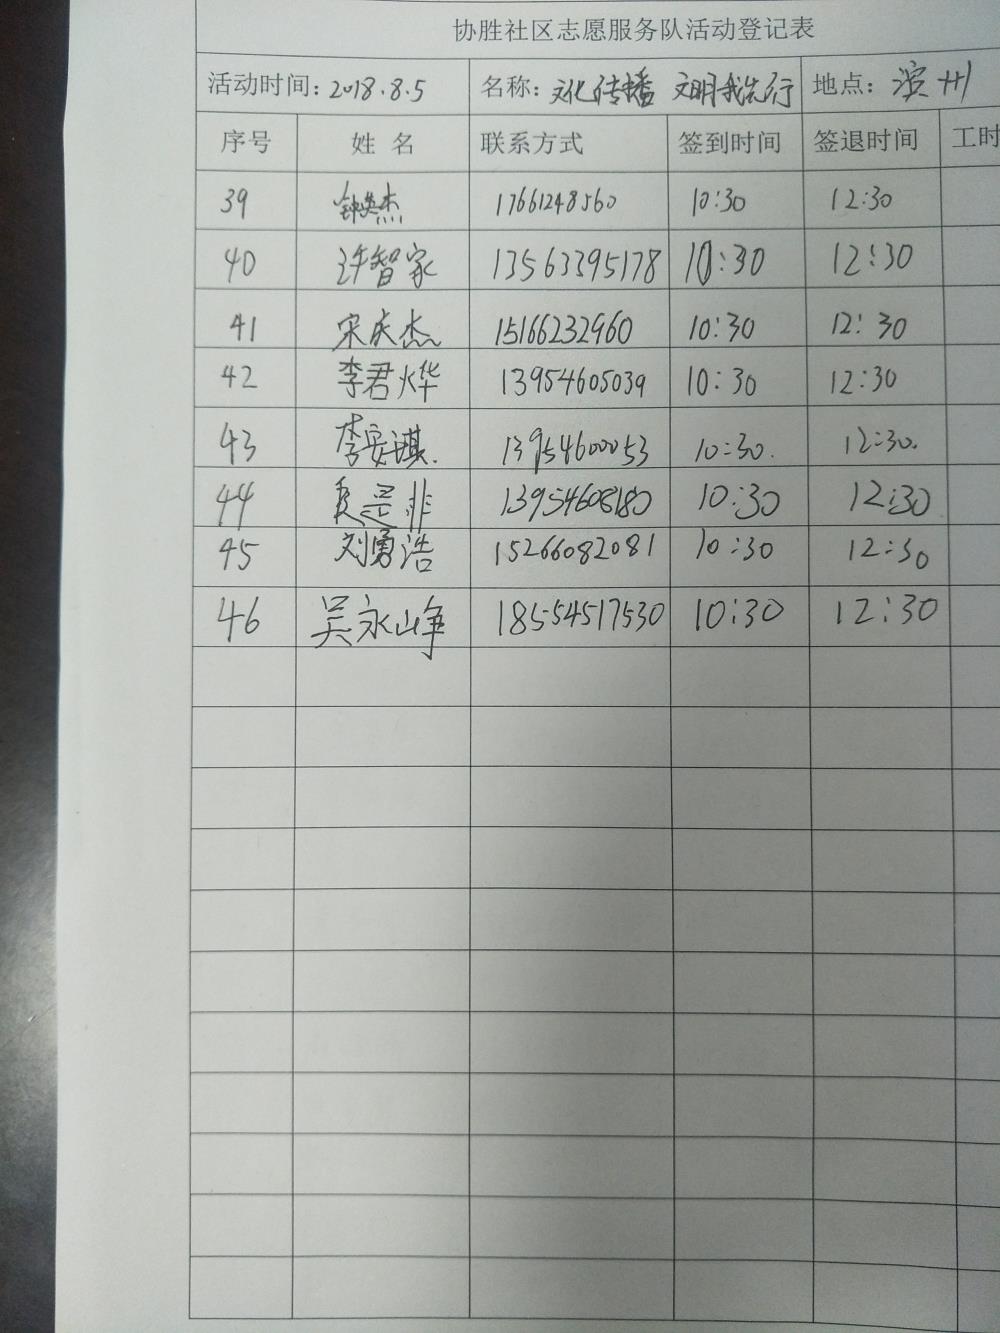 协胜社区志愿服务队活动登记表
活动时间：2018.8.5 名称：文化传播 文明我先行 地点：滨州
序号 姓名 联系方式 签到时间 签退时间 工时
39 钟英杰 17661248560 10:30 12:30
40 许智家 13563395178 10:30 12:30
41 宋庆杰 15166232960 10:30 12:30
42 李君烨 13954605039 10:30 12:30
43 李安琪. 13954600053 10:30. 12:30.
44 是非 13954608180 10:30 12:30
45 刘勇浩 15266082081 10:30 12:30
46 吴永峥 18554517530 10:30 12:30